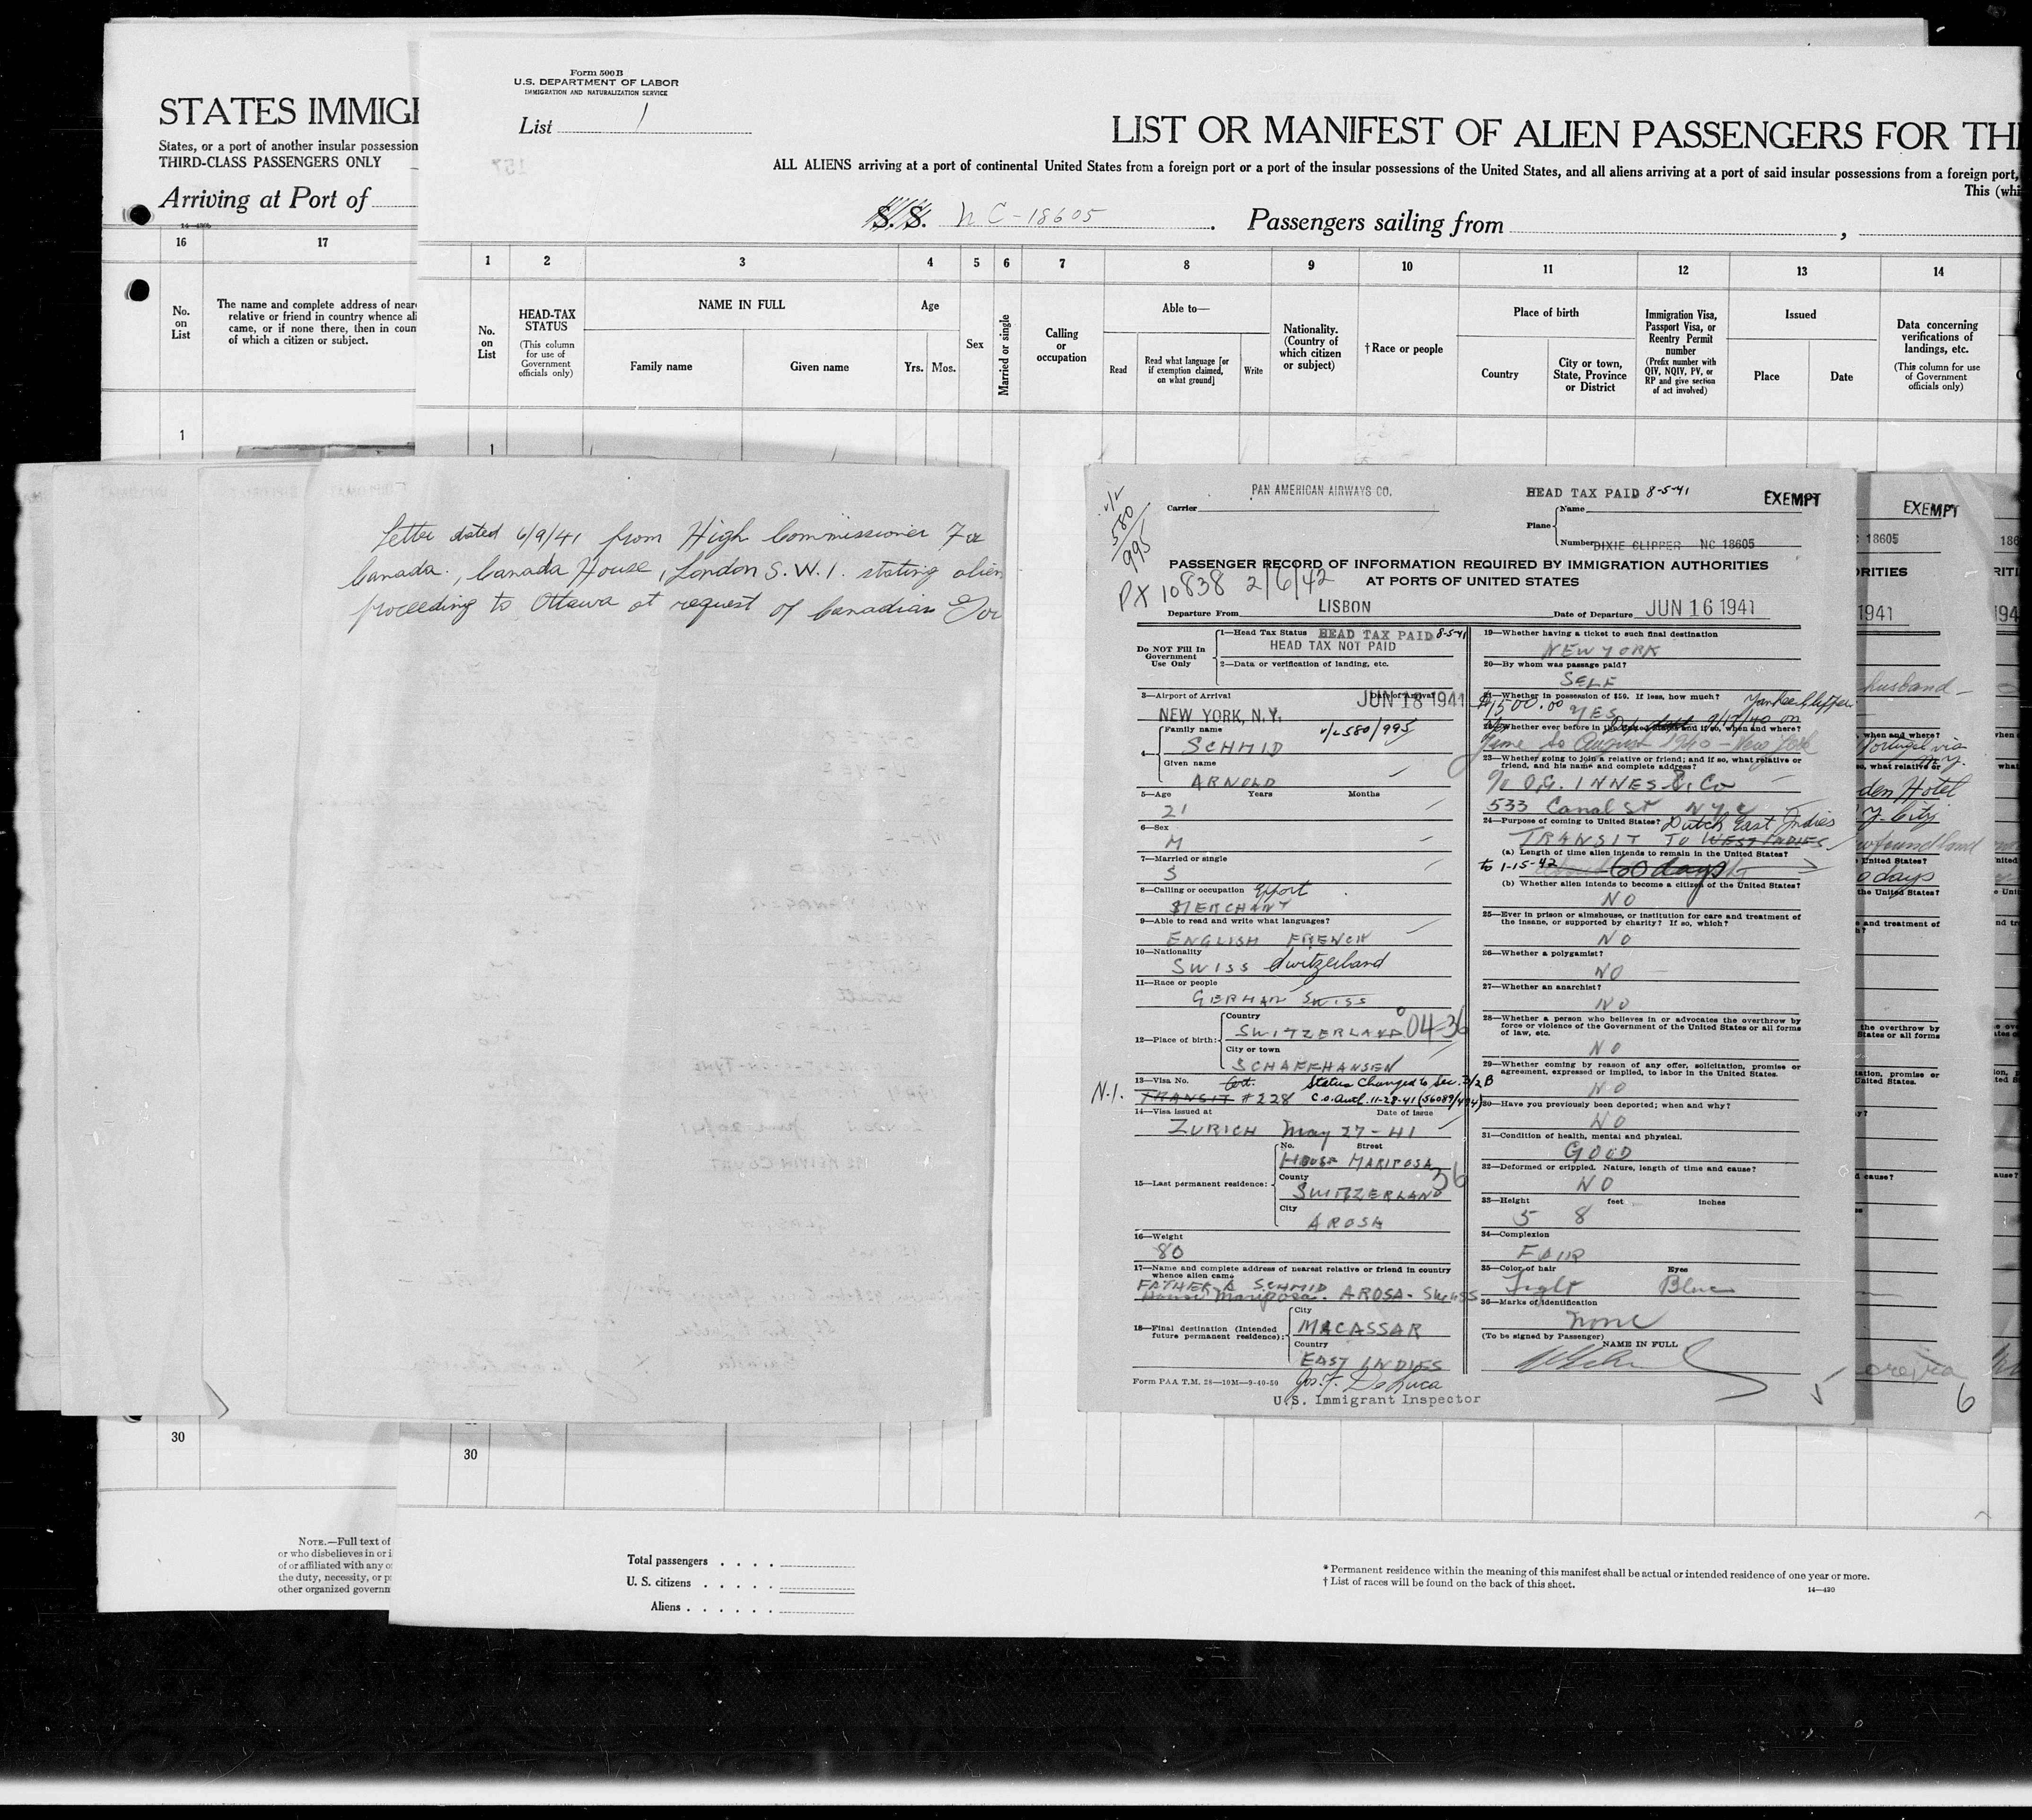 STATES IMMIG
States, or a port of another insular possession
THIRD-CLASS PASSENGERS ONLY
Arriving at Port of
14—430b
16
17
No. on List
The name and complete address of near
relative or friend in country whence ali
came, or if none there, then in coun
of which a citizen or subject.
1
30
NOTE.—Full text of
or who disbelieves in or i
of or affiliated with any o
the duty, necessity, or p
other organized governm
Form 500B
U.S. DEPARTMENT OF LABOR
IMMIGRATION AND NATURALIZATION SERVICE
List 1
157
LIST OR MANIFEST OF ALIEN PASSENGERS FOR TH
ALL ALIENS arriving at a port of continental United States from a foreign port or a port of the insular possessions of the United States, and all aliens arriving at a port of said insular possessions from a foreign port,
This (whi
S. S. NC-18605. Passengers sailing from ,
1 2 3 4 5 6 7 8 9 10 11 12 13 14
No. on List
HEAD-TAX STATUS
(This column for use of Government officials only)
NAME IN FULL
Family name
Given name
Age
Yrs.
Mos.
Sex
Married or single
Calling or occupation
Able to—
Read
Read what language [or if exemption claimed, on what ground]
Write
Nationality. (Country of which citizen or subject)
† Race or people
Place of birth
Country
City or town, State, Province or District
Immigration Visa, Passport Visa, or Reentry Permit number
(Prefix number with QIV, NQIV, PV, or RP and give section of act involved)
Issued
Place
Date
Data concerning verifications of landings, etc.
(This column for use of Government officials only)
1
30
Letter dated 6/9/41 from High Commissioner For
Canada., Canada House, London S.W.1. stating alien
proceeding to Ottawa at request of Canadian Gov
PAN AMERICAN AIRWAYS CO.
Carrier
HEAD TAX PAID 8-5-41
EXEMPT
Plane
Name
Number DIXIE CLIPPER NC 18605
580/995
PASSENGER RECORD OF INFORMATION REQUIRED BY IMMIGRATION AUTHORITIES
AT PORTS OF UNITED STATES
PX 10838 2/6/42
Departure From LISBON
Date of Departure JUN 16 1941
Do NOT Fill In
Government
Use Only
1—Head Tax Status HEAD TAX PAID 8-5-41
HEAD TAX NOT PAID
2—Data or verification of landing, etc.
3—Airport of Arrival
Date of Arrival
JUN 18 1941
NEW YORK, N.Y.
4—
Family name
v/L580/995
SCHMID
Given name
ARNOLD
5—Age Years Months
21
6—Sex
M
7—Married or single
S
8—Calling or occupation Export
MERCHANT
9—Able to read and write what languages?
ENGLISH FRENCH
10—Nationality
SWISS Switzerland
11—Race or people
GERMAN SWISS
12—Place of birth:
Country
SWITZERLAND 04-36
City or town
SCHAFFHANSEN
13—Visa No. Status Changed to Sec. 3/2 B
N.I. TRANSIT #228 C.O. Auth. 11-28-41 (56089/484)
14—Visa issued at Date of issue
ZURICH May 27-41
15—Last permanent residence:
No. Street
HOUSE MARIPOSA
County
SWITZERLAND
36
City
AROSA
16—Weight
80
17—Name and complete address of nearest relative or friend in country
whence alien came
FATHER A SCHMID
House Mariposa. AROSA-
18—Final destination (Intended
future permanent residence):
City
MACASSAR
Country
EAST INDIES
Form PAA T.M. 28—10M—9-40-50
Jos. F. DeLuca
U.S. Immigrant Inspector
19—Whether having a ticket to such final destination
NEW YORK
20—By whom was passage paid?
SELF
21—Whether in possession of $50. If less, how much?
$1500.00 YES
Yankee Clipper
22—Whether ever before in the United States and if so, when and where?
9/17/40 on
June to August 1940 - New York
23—Whether going to join a relative or friend; and if so, what relative or
friend, and his name and complete address?
c/o O.G. INNES & Co
533 Canal St N.Y.C
24—Purpose of coming to United States? Dutch East Indies
TRANSIT TO WEST INDIES
(a) Length of time alien intends to remain in the United States?
to 1-15-42 60 days
(b) Whether alien intends to become a citizen of the United States?
NO
25—Ever in prison or almshouse, or institution for care and treatment of
the insane, or supported by charity? If so, which?
NO
26—Whether a polygamist?
NO
27—Whether an anarchist?
NO
28—Whether a person who believes in or advocates the overthrow by
force or violence of the Government of the United States or all forms
of law, etc.
NO
29—Whether coming by reason of any offer, solicitation, promise or
agreement, expressed or implied, to labor in the United States.
NO
30—Have you previously been deported; when and why?
NO
31—Condition of health, mental and physical.
GOOD
32—Deformed or crippled. Nature, length of time and cause?
NO
33—Height feet inches
5 8
34—Complexion
FAIR
35—Color of hair Eyes
Light Blue
36—Marks of identification
none
(To be signed by Passenger)
NAME IN FULL
EXEMPT
18605
RITIES
1941
husband
when and where?
Portugal via
N.Y.
so, what relative or
den Hotel
Y. City
Newfoundland
United States?
0 days
the United States?
and treatment of
the overthrow by
States or all forms
tation, promise or
United States.
cause?
6
Total passengers . . . .
U. S. citizens . . . . .
Aliens . . . . . .
* Permanent residence within the meaning of this manifest shall be actual or intended residence of one year or more.
† List of races will be found on the back of this sheet.
14—430